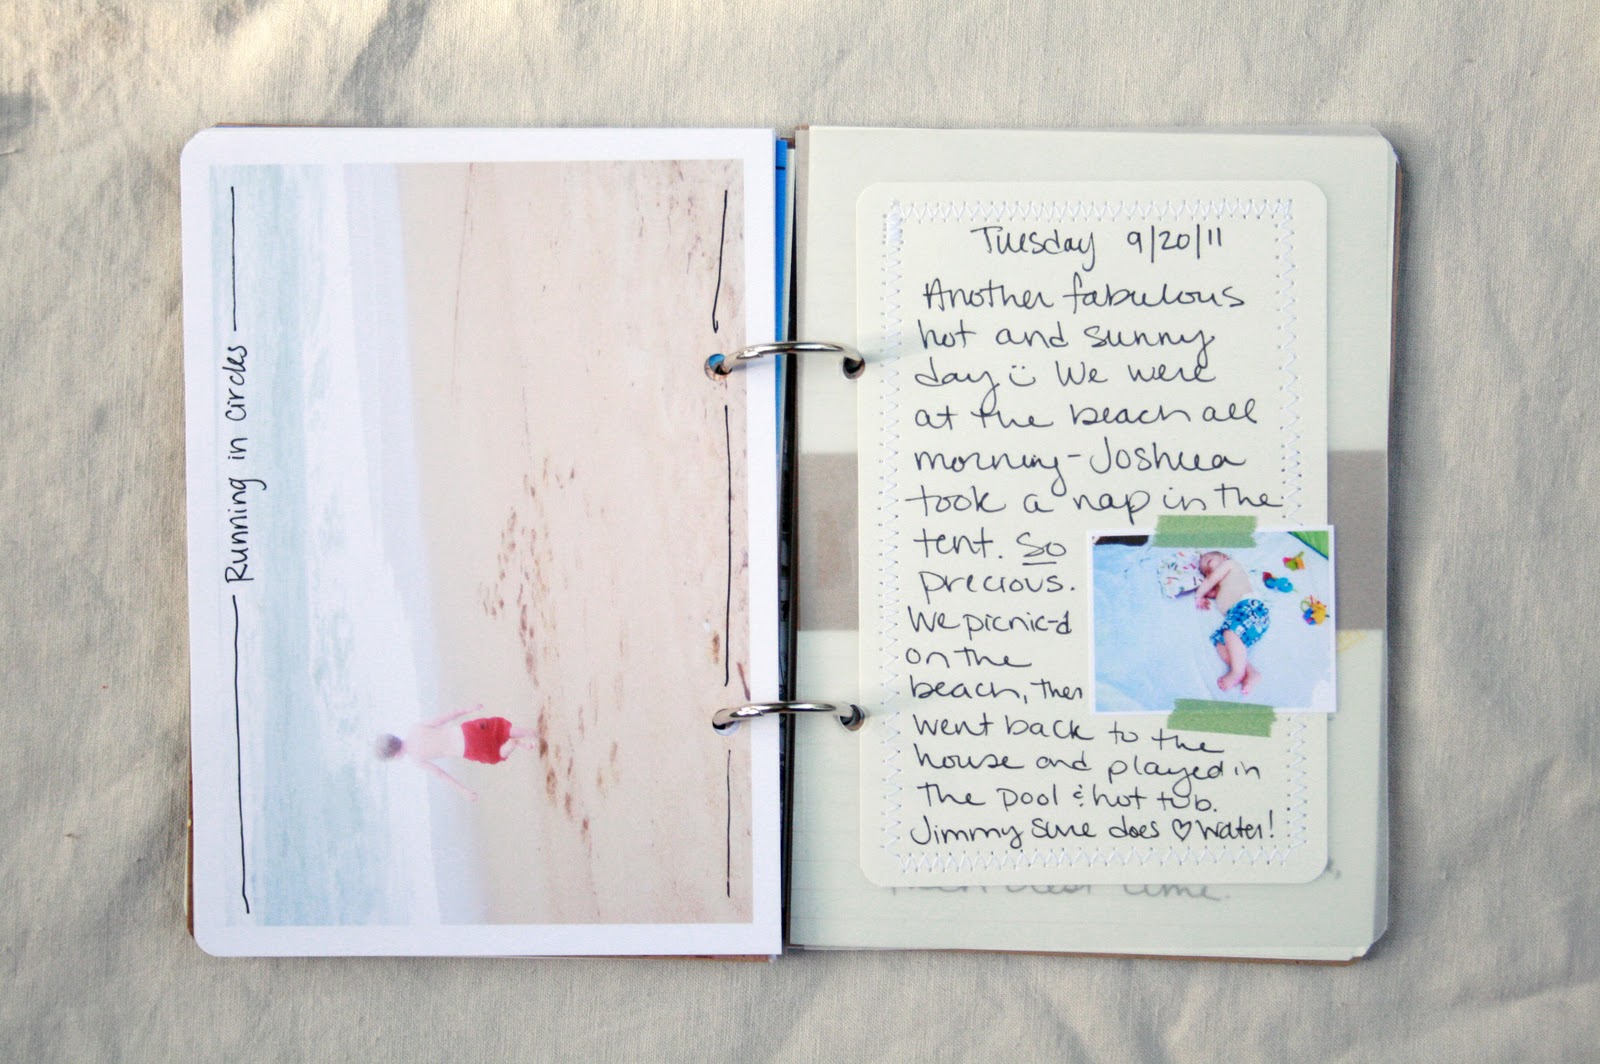 Running in circles
Tuesday 9/20/11
Another fabulous
hot and sunny
day We were
at the beach all
morning - Joshua
took a nap in the
tent. So
precious.
We picnic-d
on the
beach, then
went back to the
house and played in
the pool & hot tub.
Jimmy sure does ♡ water!
time.